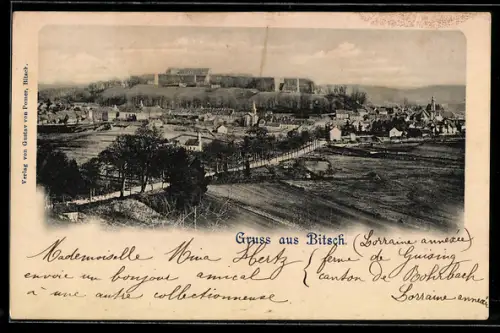 Verlag von Gustav von Pomer, Bitsch.
Gruss aus Bitsch.
(Lorraine annexée)
Mademoiselle Mina Sbertz
envoie un bonjour amical
à une autre collectionneuse
ferme de Guising
canton de Rohrbach
Lorraine annexée